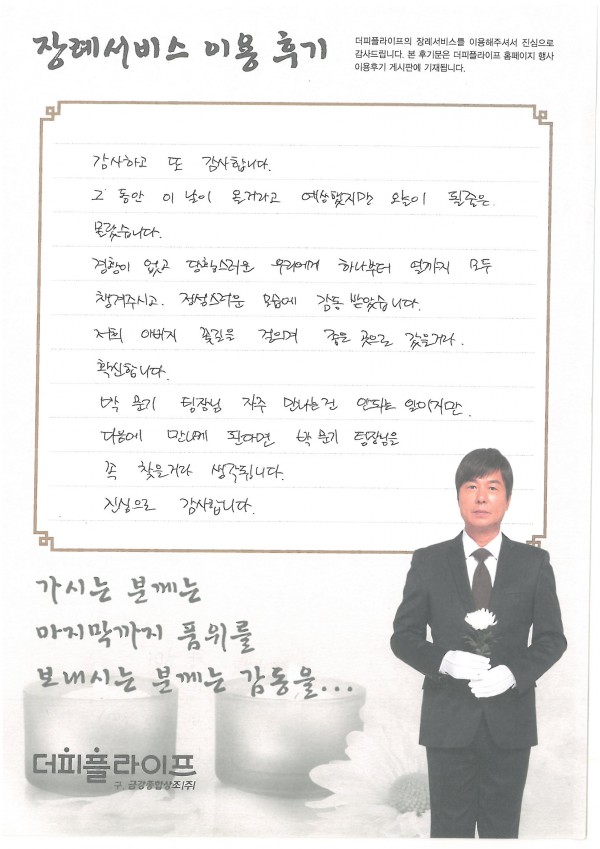 장례서비스 이용 후기
더피플라이프의 장례서비스를 이용해주셔서 진심으로
감사드립니다. 본 후기문은 더피플라이프 홈페이지 행사
이용후기 게시판에 기재됩니다.
감사하고 또 감사합니다.
그 동안 이 날이 올거라고 예상했지만 오늘이 될줄은
몰랐습니다.
경황이 없고 당황스러운 우리에게 하나부터 열까지 모두
챙겨주시고. 정성스러운 모습에 감동 받았습니다.
저희 아버지 꽃길을 걸으며 좋은 곳으로 갔을거라.
확신합니다.
박 문기 팀장님 자주 만나는건 안되는 일이지만.
다음에 만나게 된다면 박 문기 팀장님을
꼭 찾을거라 생각됩니다.
진심으로 감사합니다.
가시는 분께는
마지막까지 품위를
보내시는 분께는 감동을...
더피플라이프
구. 금강종합상조(주)